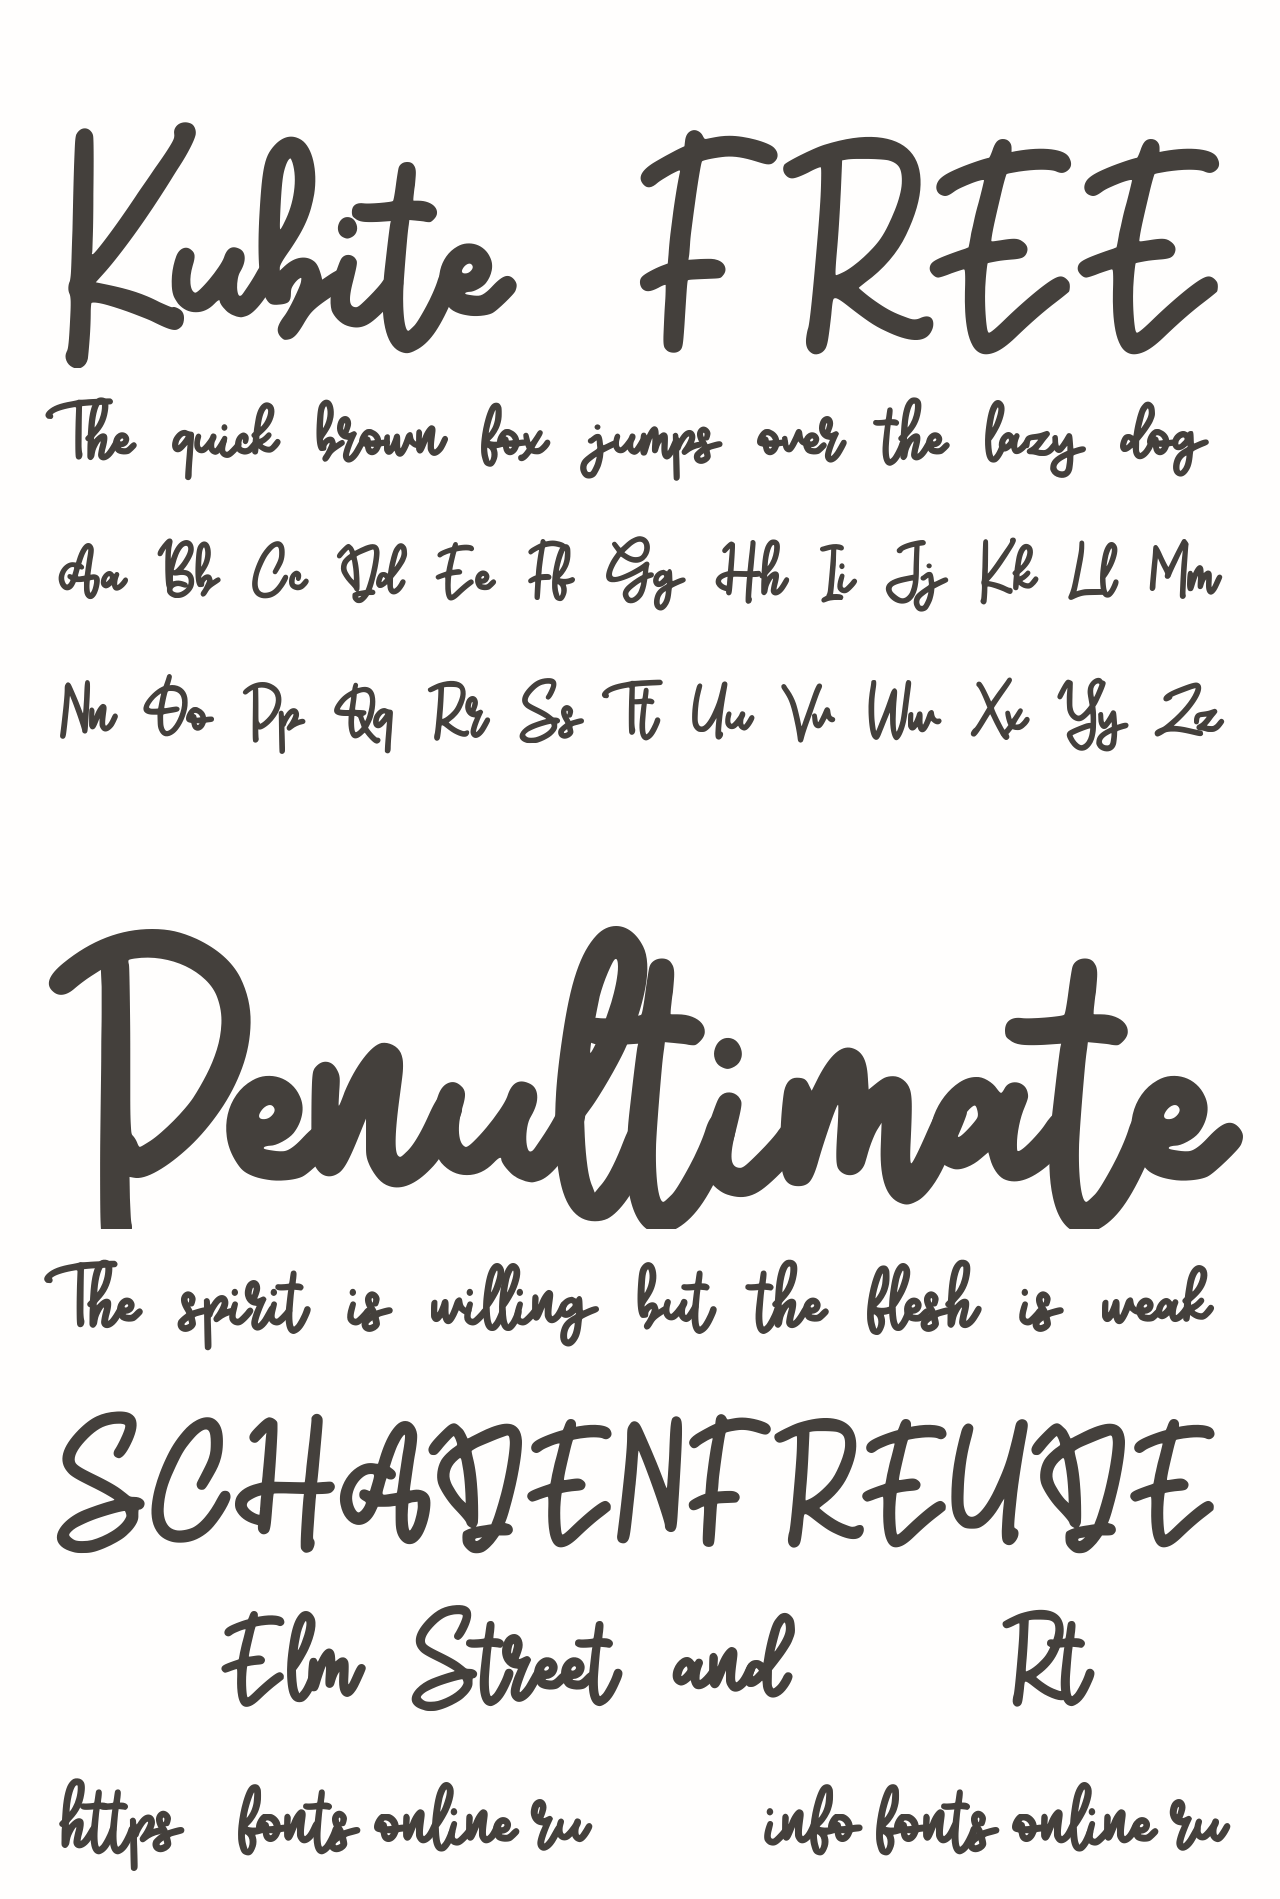 Kubite FREE
The quick brown fox jumps over the lazy dog
Aa Bb Cc Dd Ee Ff Gg Hh Ii Jj Kk Ll Mm
Nn Oo Pp Qq Rr Ss Tt Uu Vv Ww Xx Yy Zz
Penultimate
The spirit is willing but the flesh is weak
SCHADENFREUDE
Elm Street and Rt
https fonts online ru info fonts online ru